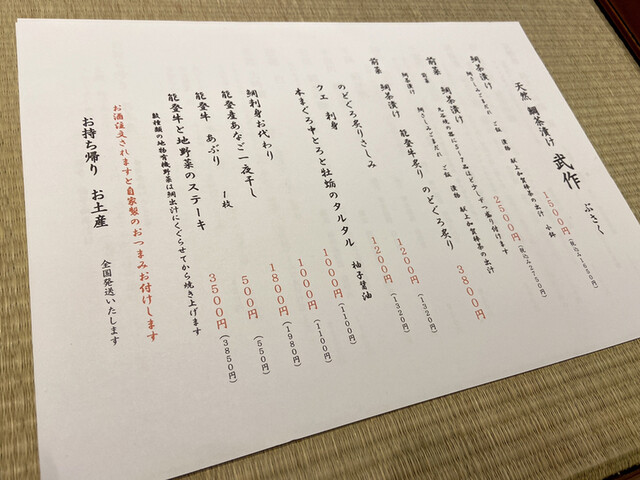 天然 鯛茶漬け 武作 ぶさく
鯛茶漬け 1500円(税込み1650円)
鯛さしみごまだれ ご飯 漬物 献上加賀棒茶の出汁 小鉢
前菜 鯛茶漬け 2500円(税込み2750円)
前菜 九谷焼の器に5~7品ほど少しずつ盛り付けます
鯛茶漬け 鯛さしみごまだれ ご飯 漬物 献上加賀棒茶の出汁
前菜 鯛茶漬け 能登牛炙り のどぐろ炙り 3800円
のどぐろ炙りさしみ 1200円(1320円)
クエ 刺身 柚子醤油 1200円(1320円)
本まぐろ中とろと牡蛎のタルタル 1000円(1100円)
鯛刺身お代わり 1000円(1100円)
能登産あなご一夜干し 1800円(1980円)
能登牛 あぶり 1枚 500円(550円)
能登牛と地野菜のステーキ 3500円(3850円)
数種類の地物有機野菜は鯛出汁にくぐらせてから焼き上げます
お酒注文されますと自家製のおつまみお付けします
お持ち帰り お土産 全国発送いたします